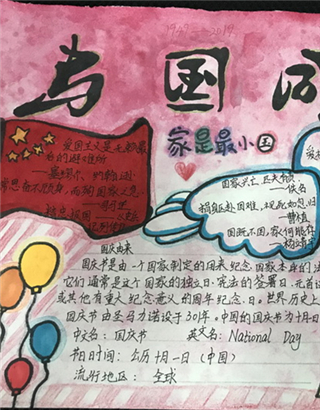 1949——2019
与国同
家是最小国
爱国主义是无赖最后的避难所
国家兴亡,匹夫有责
——佚名
捐躯赴国难,视死如归
——曹植
国既不国,家何能存
国庆由来
国庆节是由一个国家制定的用来纪念国家本身的法
它们通常是这个国家的独立日、宪法的签署日、元首诞
或其他有重大纪念意义的周年纪念日。然而历史上
国庆由圣马力诺设于301年。中国的国庆节为十月一日
中文名:国庆节 英文名:National Day
节日时间:公历十月一日(中国)
流行地区:全球